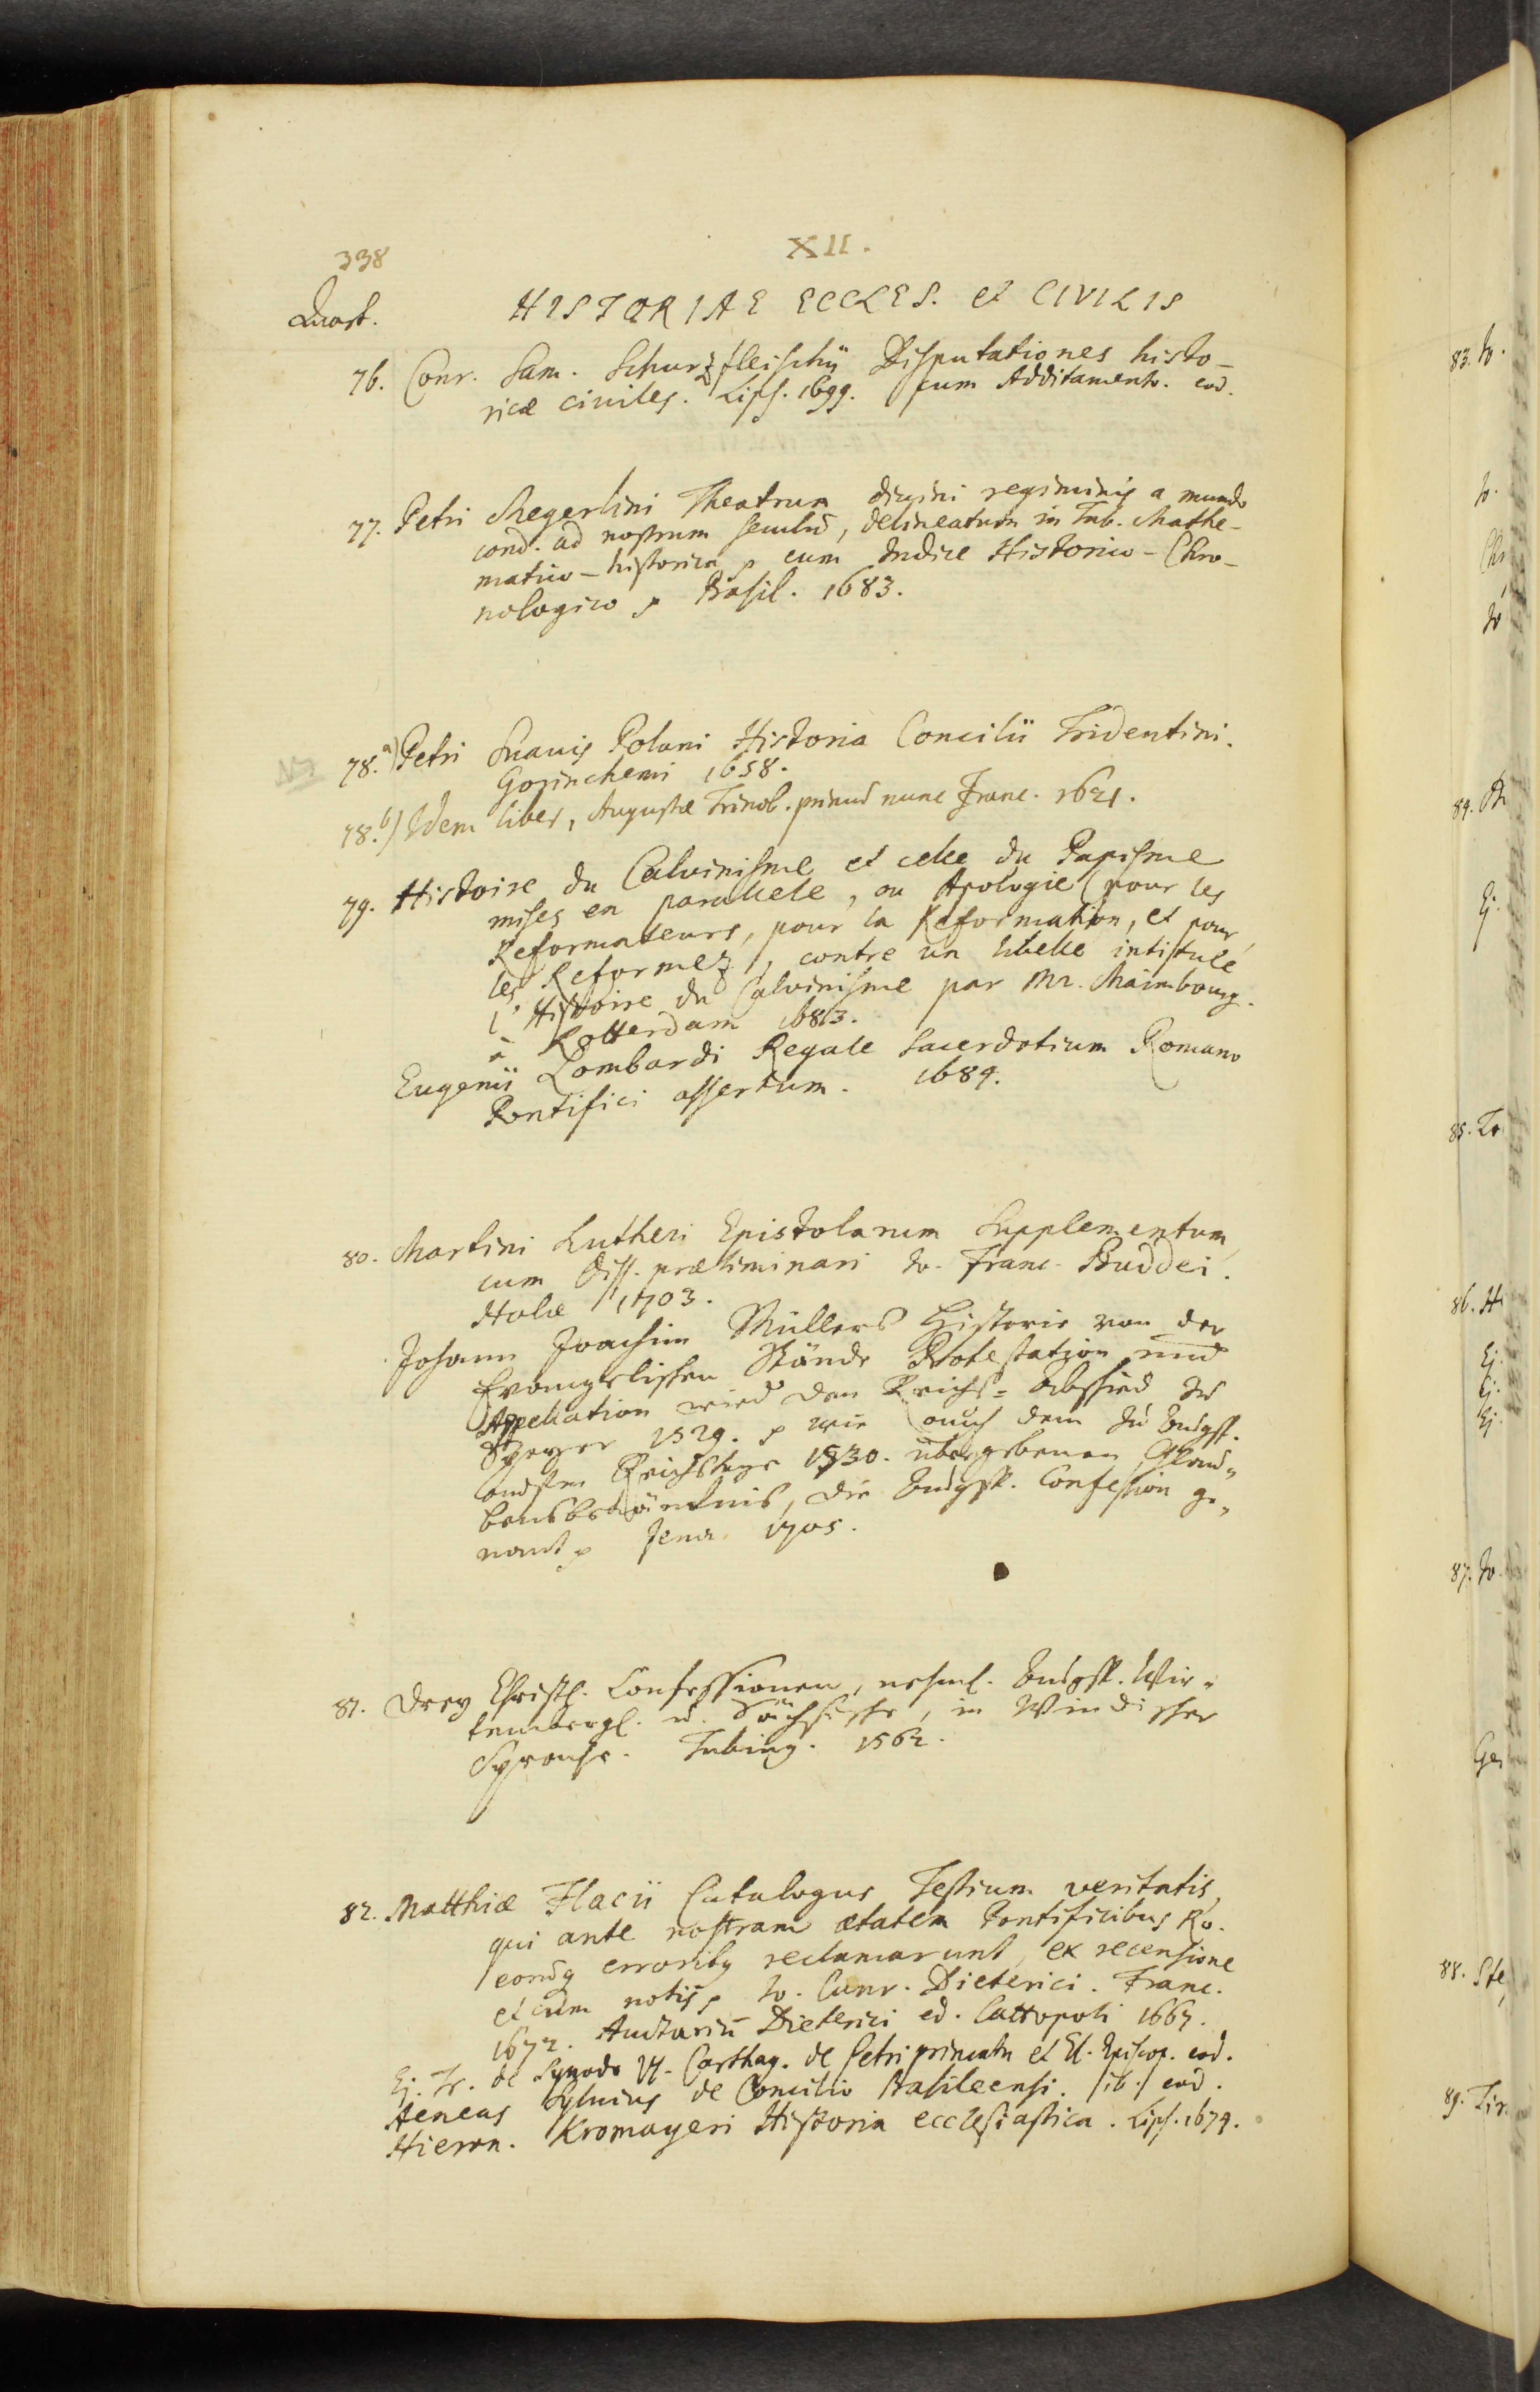 338
XII.
Quart.
HISTORIAE ECCLES. et CIVILIS
76. Conr. Sam. Schurzfleischij Disputationes histo-
ricæ civiles. Lips. 1699. cum Additamento. eod.
77. Petri Megerlini Theatrum divini regiminis a mundo
cond. ad nostrum seculũ, delineatum in Tab. Mathe-
matico-historica p cum Indice Historico-Chro-
nologico p Basil. 1683.
78.a) Petri Suavis Polani Historia Concilii Tridentini.
Gorinchemi 1658.
78.b) Idem liber, Augustæ Trinob. primũ nunc Franc. 1621.
79. Histoire du Calvinisme et celle du Papisme
mises en parallele, ou Apologie pour les
Reformateurs, pour la Reformation, et pour
les Reformez, contre un libelle intitulé
l'Histoire du Calvinisme par Mr. Maimbourg.
à Rotterdam 1683.
Eugenii Lombardi Regale Sacerdotium Romano
Pontifici assertum. 1684.
80. Martini Lutheri Epistolarum Supplementum
cum Diss. præliminari Io. Franc. Buddei.
Halæ 1703.
Johann Joachim Müllers Historie von der
Evangelischen Stände Protestation und
Appellation wied den Reichs=Abschied zu
Speyer 1529. p wie auch dem zu Augsp.
Reichstage 1530. übergebenen Glau=
bensbekäntnis, die Augsp. Confession ge=
nant p Jena 1705.
81. Drey Christl. Confessionen, nehml. Augsp. Wir=
tembergl. u. Sächsische, in Windischer
Sprache. Tubing. 1562.
82. Matthiæ Flacii Catalogus Testium veritatis,
qui ante nostram ætatem Pontificibus Ro.
eorũq erroribq reclamarunt, ex recensione
et cum notis p Io. Cunr. Dieterici. Franc.
1672. Auctariũ Dieterici ed. Cattopoli 1667.
Ej. Tr. de Synodo VI. Carthag. de Petri primatu et El. Episcop. eod.
Aeneas Sylvius de Concilio Basileensi. /ib./ eod.
Hieron. Kromayeri Historia ecclesiastica. Lips. 1674.
83. Io.
84.
85.
86. Hi
Ej.
Ej.
Ej.
87. Io.
Ges
88. Ste
89. Tir